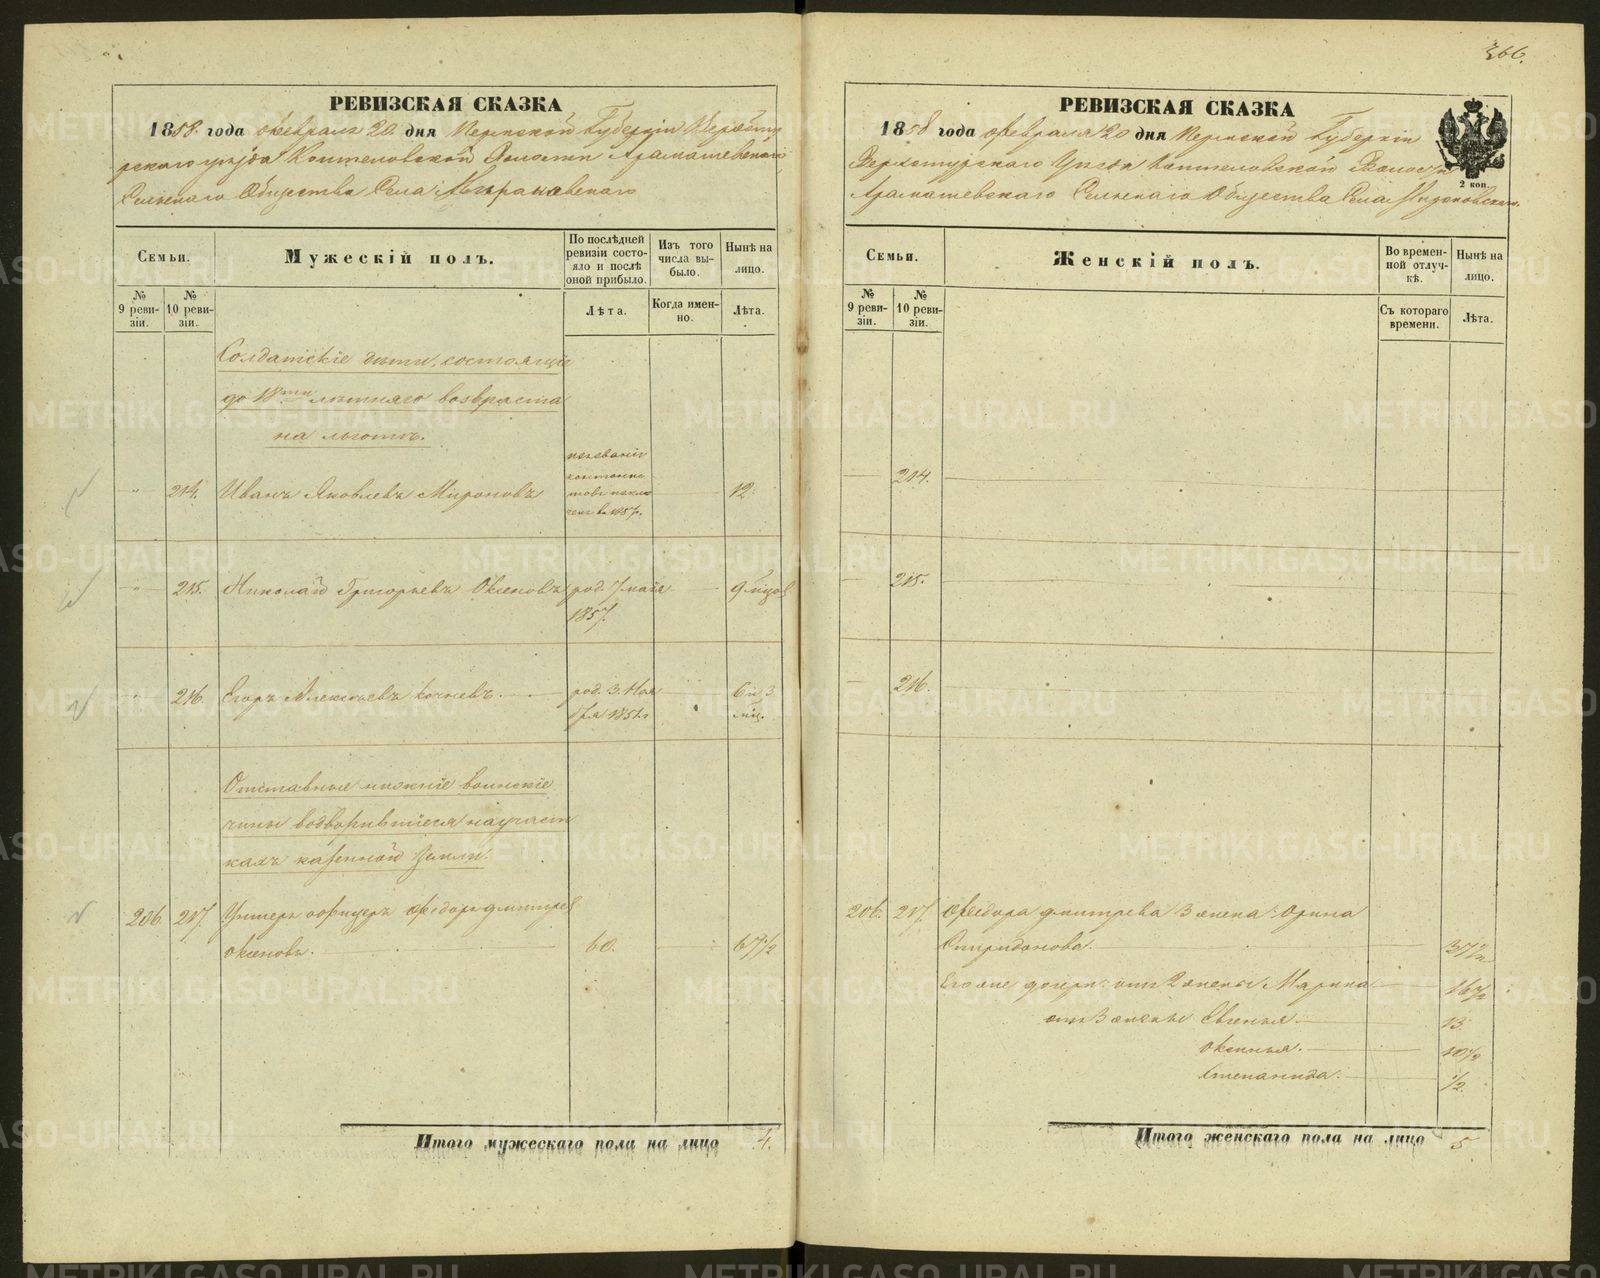 366.
РЕВИЗСКАЯ СКАЗКА
1858 года февраля 20 дня Пермской Губерніи Верхоту
рскаго уѣзда Коптеловской Волости Арамашевскаго
Сельскаго Общества Села
Семьи.
Мужескій полъ.
По послѣдней ревизіи состояло и послѣ оной прибыло.
Изъ того числа выбыло.
Нынѣ на лицо.
№ 9 ревизіи.
№ 10 ревизіи.
Лѣта.
Когда именно.
Лѣта.
Солдатскіе дѣти, состоящіе
до 18ти лѣтняго возраста
на льготѣ.
214. Иванъ Яковлевъ Мироновъ 12.
215. Николай Григорьевъ Оксеновъ род. 7 мая 9 мѣцов
1857.
216. Егоръ Алексѣевъ Кочневъ. род. 3. Ноя 6 и 3
бря 1851 г. мѣц.
Отставные нижніе воинскіе
чины водворившіеся на участ
кахъ казенной земли.
206. 217. Унтеръ офицеръ Федоръ Дмитрев
Оксеновъ. 60. 67 1/2
Итого мужескаго пола на лицо 4.
РЕВИЗСКАЯ СКАЗКА
1858 года февраля 20 дня Пермской Губерніи
Верхотурскаго Уѣзда Коптеловской Волости
Арамашевскаго Сельскаго Общества Села Мироновскаго.
2 коп.
Семьи.
Женскій полъ.
Во временной отлучкѣ.
Нынѣ на лицо.
№ 9 ревизіи.
№ 10 ревизіи.
Съ котораго времени.
Лѣта.
214.
215.
216.
206. 217. Федора Дмитрева 3 жена Орина
Спиридонова. 37 1/2
Его же дочери: отъ 2 жены Марина 16 1/2
отъ 3 жены Евгенья. 13.
Оксинья. 10 1/2
Степанида. 1/2.
Итого женскаго пола на лицо 5
METRIKI.GASO-URAL.RU